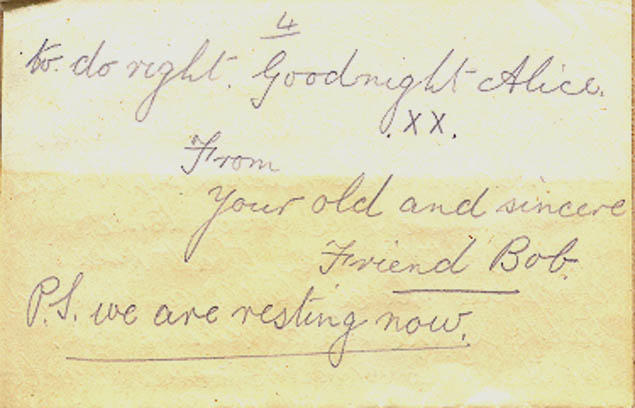 4
to do right. Goodnight Alice.
.XX.
From
Your old and sincere
Friend Bob.
P.S. we are resting now.